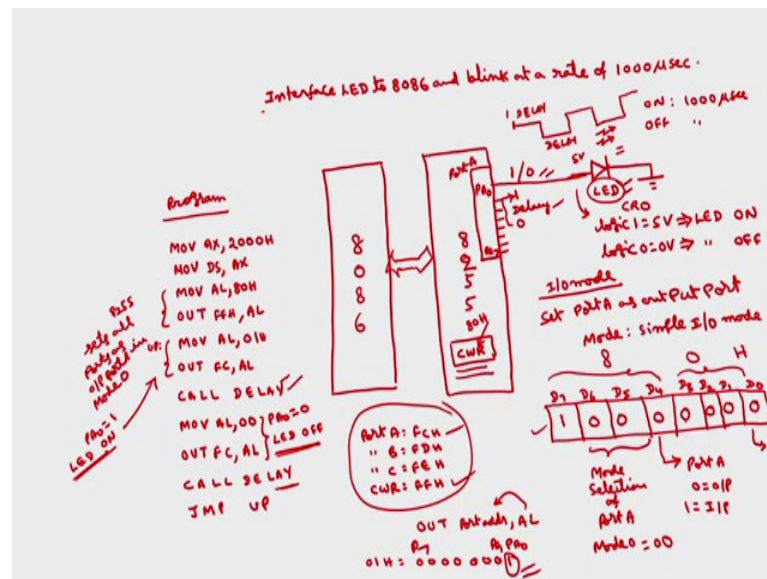 Interface LED to 8086 and blink at a rate of 1000μsec.
1 DELAY
DELAY
ON: 1000μsec
OFF "
Port A
PA0
1/0
5V
LED
CRO
1
0
Delay
logic 1 = 5V ⇒ LED ON
logic 0 = 0V ⇒ " OFF
8
0
8
6
8
2
5
5
80H
CWR
Program
MOV AX, 2000H
MOV DS, AX
MOV AL, 80H
OUT FFH, AL
UP: MOV AL, 01H
OUT FC, AL
CALL DELAY
MOV AL, 00
OUT FC, AL
CALL DELAY
JMP UP
8255
sets all
Ports as
O/P Ports in
Mode 0
PA0 = 1
LED ON
PA0 = 0
LED OFF
Port A: FCH
" B: FDH
" C: FEH
CWR: FFH
OUT Port addr, AL
P7 P1 PA0
01H = 0 0 0 0 0 0 0 1
I/O mode
Set Port A as output Port
Mode: simple I/O mode
8 0 H
D7 D6 D5 D4 D3 D2 D1 D0
1 0 0 0 0 0 0 0
Mode
Selection
of
Port A
Mode 0 = 00
Port A
0 = O/P
1 = I/P